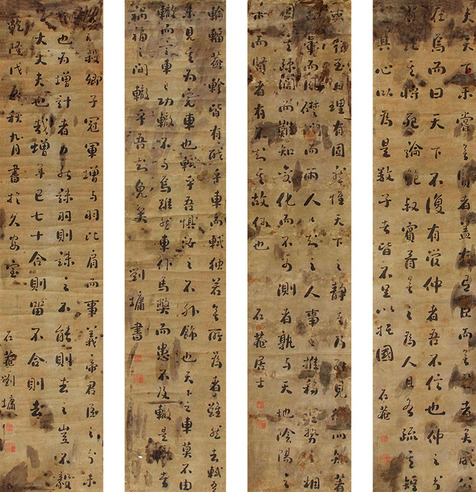 天下未嘗無賢者蓋有有臣而無君者矣威公
在焉而曰天下不復有管仲者吾不信也仲之書
有記其將死論鮑叔賓胥無之為人且各疏其短
是其心以為是數子者皆不足以托國
石菴
事有必至理有固然惟天下之靜者乃能見微而知著
月暈而風礎潤而雨人人知之人事之推移理勢之相
因其疏闊而難知變化而不可測者孰與天地陰陽之
事而賢者有不知其故何也
石菴居士
輪輻蓋軫皆有職乎車而軾獨若無所為者雖然去軾吾
未見其為完車也軾乎吾懼汝之不外飾也天下之車莫不由
轍而言車之功轍不與焉雖然車仆馬斃而患不及轍是轍者
禍福之間轍乎吾知免矣
劉墉書
羽殺卿子冠軍增與羽比肩而事義帝君臣之分未
定也為增計者力能誅羽則誅之不能則去之豈不毅
然大丈夫也哉增年已七十合則留不合則去
乾隆戊秋九月書於久安室
石菴劉墉